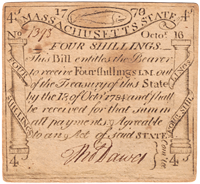 4s 1779 4s
MASSACHUSETTS STATE
No 1393 Octo.r 16
FOUR SHILLINGS
This Bill entitles the Bearer
to receive Four shillings L.M. out
of the Treasury of this State
by the 1st of Octr 1784 and shall
be received for that Sum in
all payments, Agreeable
to an Act of said STATE
FOUR SHILLINGS
FOUR SHILL
4s Tho Dawes 4s